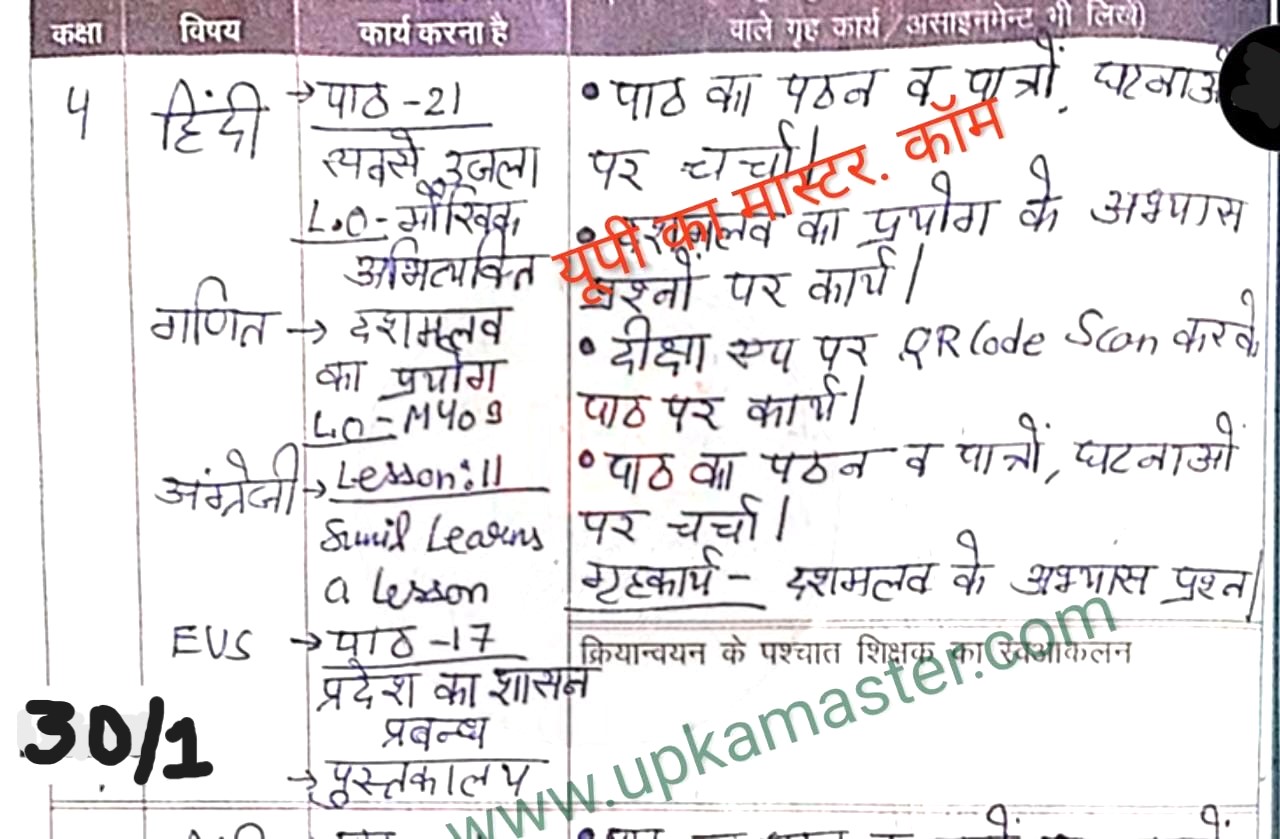 कक्षा विषय कार्य करना है वाले गृह कार्य/असाइनमेन्ट भी लिखें)
४ हिंदी → पाठ -21
सबसे उजला
L.O-मौखिक
अभिव्यक्ति
गणित → दशमलव
का प्रयोग
L.O-M409
अंग्रेजी → Lesson:11
Sunil Learns
a Lesson
EVS → पाठ -17
प्रदेश का शासन
प्रबन्ध
→ पुस्तकालय
• पाठ का पठन व पात्रों, घटनाओं
पर चर्चा।
• दशमलव का प्रयोग के अभ्यास
प्रश्नों पर कार्य।
• दीक्षा एप पर QR Code Scan करके
पाठ पर कार्य।
• पाठ का पठन व पात्रों, घटनाओं
पर चर्चा।
गृहकार्य - दशमलव के अभ्यास प्रश्न।
क्रियान्वयन के पश्चात शिक्षक का स्वआंकलन
30/1
यूपी का मास्टर. कॉम
www.upkamaster.com